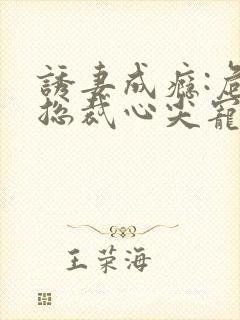 誘妻成癮:危
總裁心尖寵
王荣海